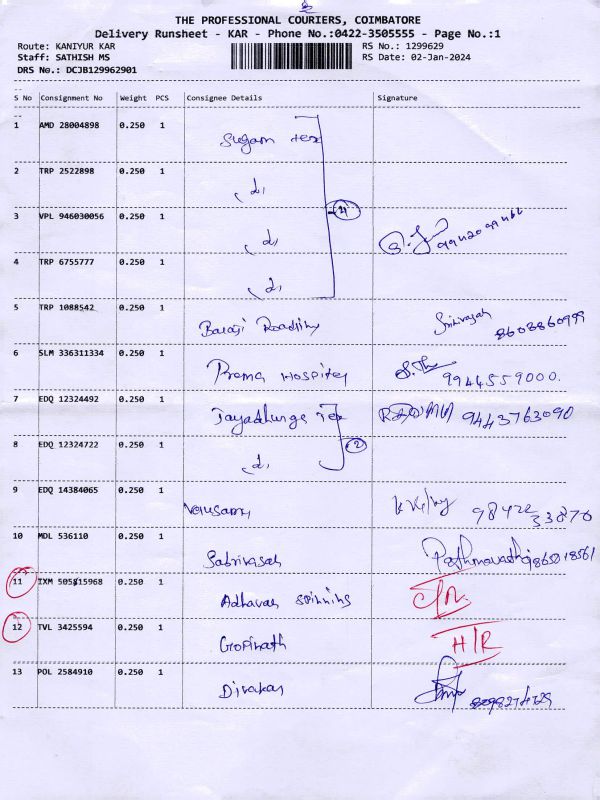 THE PROFESSIONAL COURIERS, COIMBATORE
Delivery Runsheet - KAR - Phone No.:0422-3505555 - Page No.:1
Route: KANIYUR KAR RS No.: 1299629
Staff: SATHISH MS RS Date: 02-Jan-2024
DRS No.: DCJB129962901
S No Consignment No Weight PCS Consignee Details Signature
1 AMD 28004898 0.250 1 Sugam tex
2 TRP 2522898 0.250 1
3 VPL 946030056 0.250 1
4 TRP 6755777 0.250 1
5 TRP 1088542 0.250 1 Srinivasan
6 SLM 336311334 0.250 1 Prema Hospitey 9944559000.
7 EDQ 12324492 0.250 1 Jayadhurga Tex 9443763090
8 EDQ 12324722 0.250 1 2
9 EDQ 14384065 0.250 1 98422 33870
10 MDL 536110 0.250 1
11 IXM 505815968 0.250 1 Adhavan spinning
12 TVL 3425594 0.250 1 Gopinath H/R
13 POL 2584910 0.250 1 Divakar